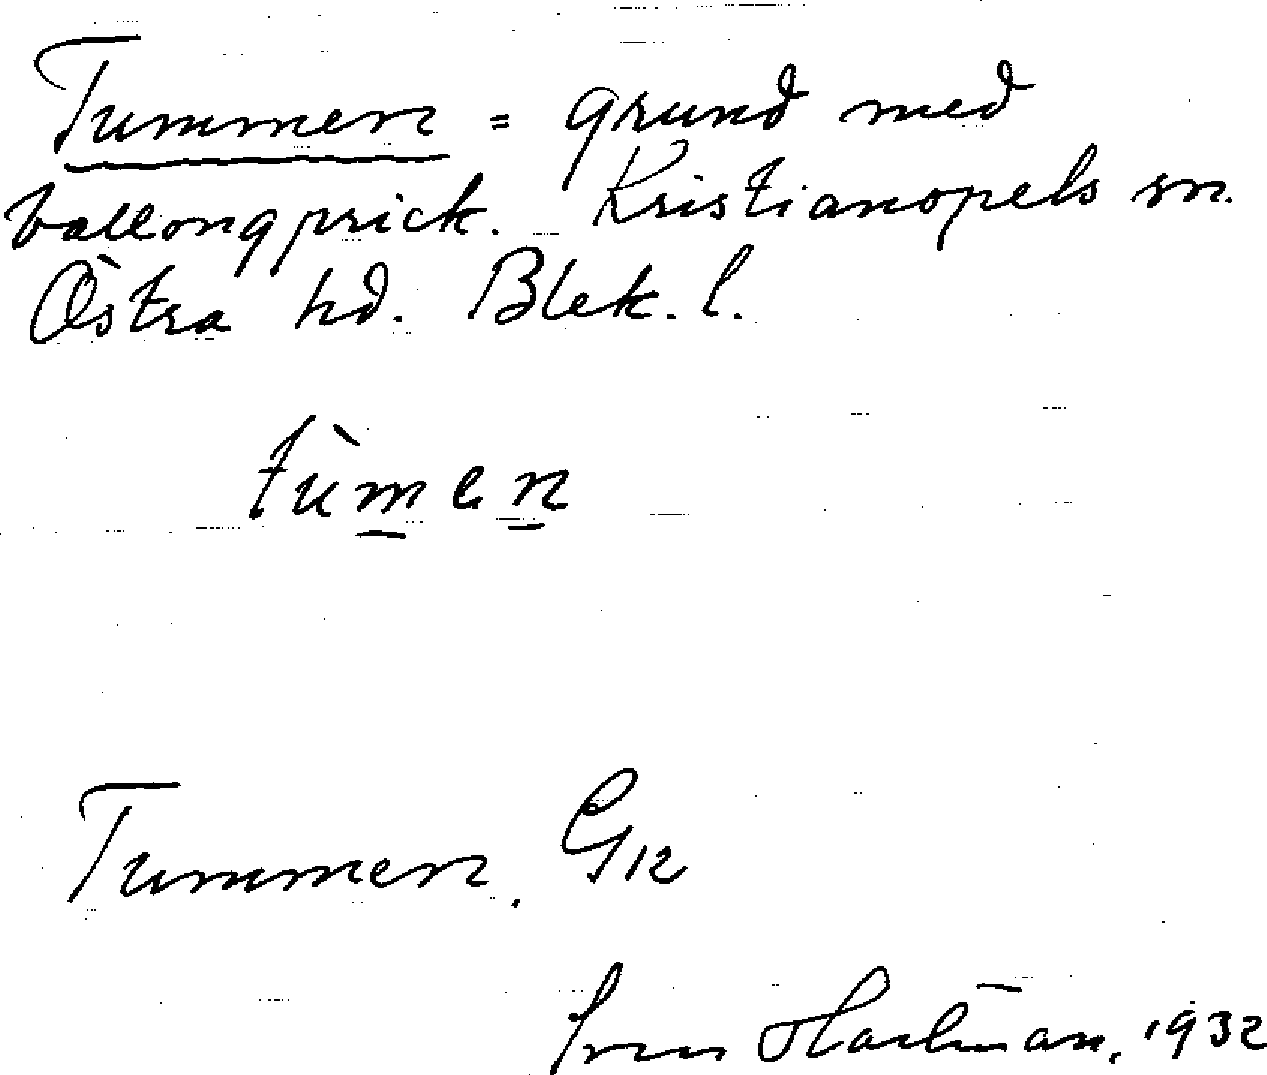 Tummen = grund med
ballongprick. Kristianopels sn.
Östra hd. Blek. l.
tùmen
Tummen. G12
Sven Hartman, 1932